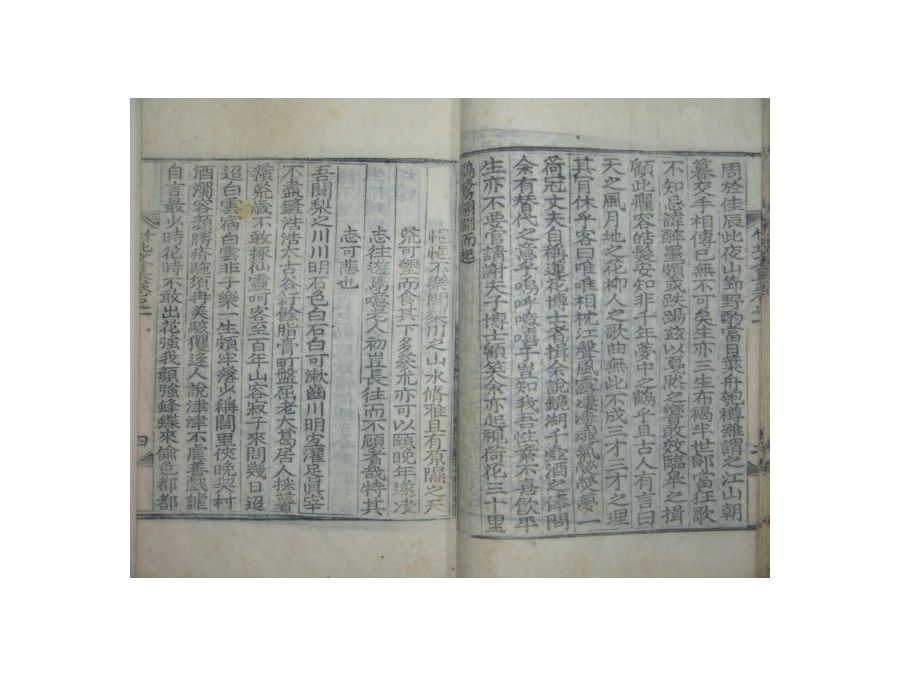 周於佳辰此夜山節野酌當日葉舟匏樽雖謂之江山朝
暮交手相傳已無不可矣生亦三生布褐半世郞當狂歌
不知忌諱醉墨頗或跌踢玆以戛然之響敢效臨皋之揖
顧此癯容皓髮安知非千年夢中之鶴乎且古人有言曰
天之風月地之花柳人之歌曲無此不成三才三才之理
其有休乎客曰唯唯相枕江聲風露凄凄魂氣悠悠夢一
荷冠丈夫自稱蓮花博士者揖余說鏡湖千壺酒之俸問
余有替代之意乎嗚呼噫嘻子豈知我吾性素不喜飮平
生亦不要官請謝夫子博士顧笑余亦起視荷花三十里
鶴 而起
不樂聞梨川之山水脩雅且有原隰之天
荒可墾而食其下多蔘朮亦可以頤晩年遂凄
志往遊焉噫老人初豈長往而不顧者哉特其
志可悲也
吾聞梨之川川明石色白石白可漱齒川明方濯足眞宰
不盡鏟浩浩太古谷行餘脂膏町盤屈老大葛居人採薯
蕷荒歲不敢採仙靈呵客至百年山客寂子來問幾日迢
迢白雲病白雲非子樂一生頗牢落少稱閭里俠晩契村
酒濁容顔勝疥駝須冉美駭玃逢人說津津不虐善戲謔
自言最少時花時不敢出花強我顔強蜂蝶來偸色都都
四